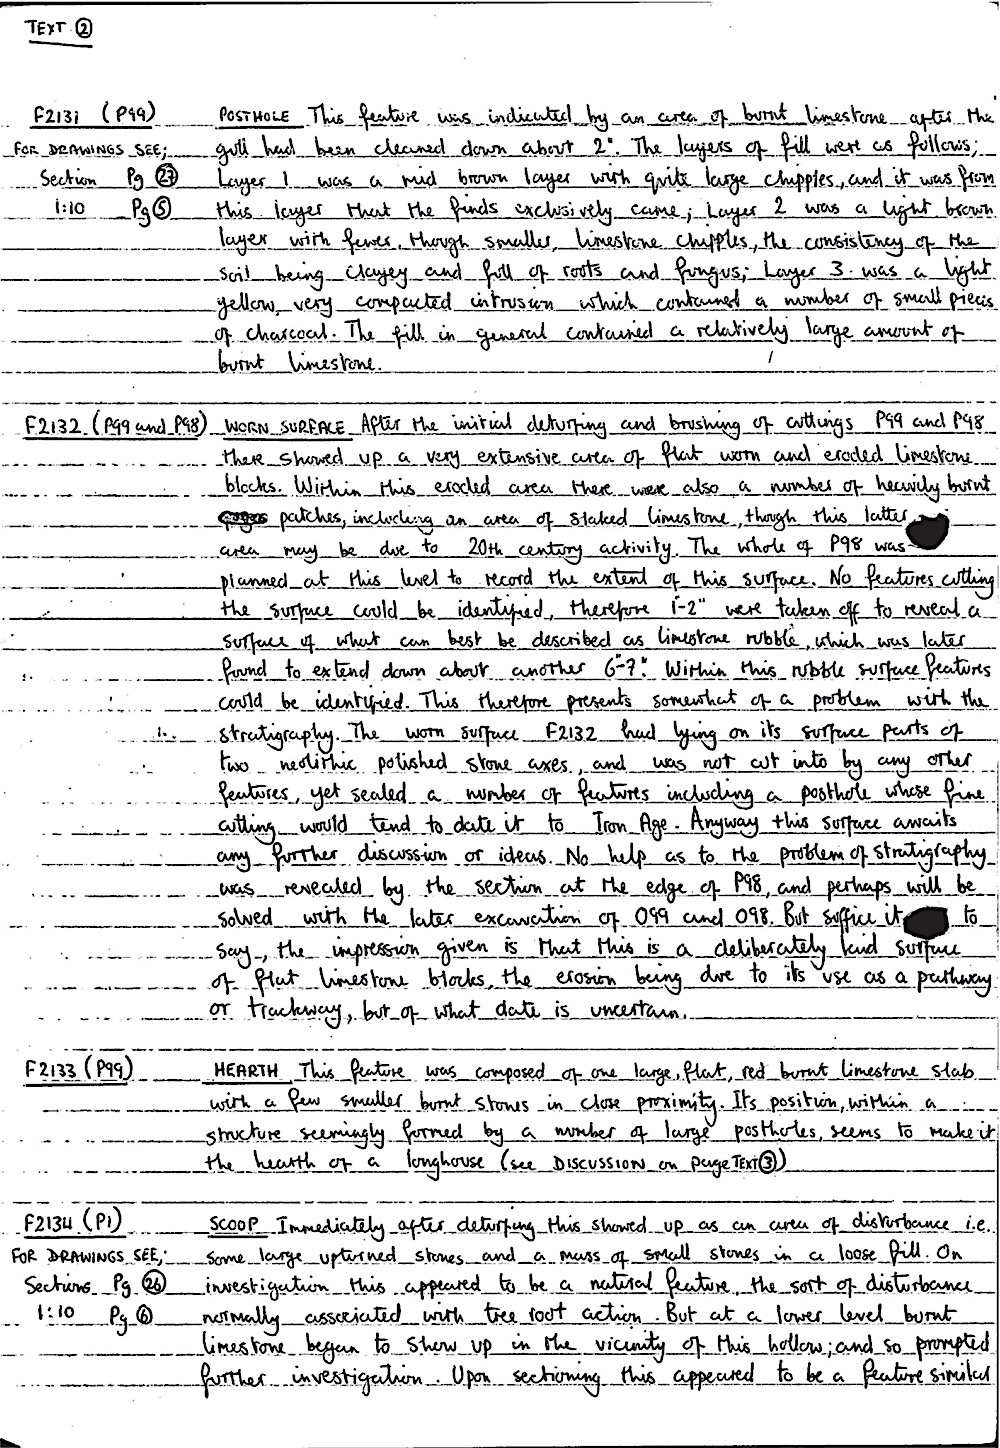 TEXT ②
F2131 (P99) POSTHOLE This feature was indicated by an area of burnt limestone after the
FOR DRAWINGS SEE; gull had been cleaned down about 2". The layers of fill were as follows;
Section Pg ㉗ Layer 1 was a mid brown layer with quite large chipples, and it was from
1:10 Pg ⑤ this layer that the finds exclusively came; Layer 2 was a light brown
layer with fewer, though smaller, limestone chipples, the consistency of the
soil being clayey and full of roots and fungus; Layer 3 was a light
yellow, very compacted intrusion which contained a number of small pieces
of charcoal. The fill in general contained a relatively large amount of
burnt limestone.
F2132 (P99 and P98) WORN SURFACE After the initial deturfing and brushing of cuttings P99 and P98
there showed up a very extensive area of flat worn and eroded limestone
blocks. Within this eroded area there were also a number of heavily burnt
patches, including an area of slaked limestone, though this latter
area may be due to 20th century activity. The whole of P98 was
planned at this level to record the extent of this surface. No features cutting
the surface could be identified, therefore 1"-2" were taken off to reveal a
surface of what can best be described as limestone rubble, which was later
found to extend down about another 6"-7". Within this rubble surface features
could be identified. This therefore presents somewhat of a problem with the
stratigraphy. The worn surface F2132 had lying on its surface parts of
two neolithic polished stone axes, and was not cut into by any other
features, yet sealed a number of features including a posthole whose fine
cutting would tend to date it to Iron Age. Anyway this surface awaits
any further discussion or ideas. No help as to the problem of stratigraphy
was revealed by the section at the edge of P98, and perhaps will be
solved with the later excavation of O99 and O98. But suffice it to
say, the impression given is that this is a deliberately laid surface
of flat limestone blocks, the erosion being due to its use as a pathway
or trackway, but of what date is uncertain.
F2133 (P99) HEARTH This feature was composed of one large, flat, red burnt limestone slab
with a few smaller burnt stones in close proximity. Its position, within a
structure seemingly formed by a number of large postholes, seems to make it
the hearth of a longhouse (see DISCUSSION on page TEXT ③)
F2134 (P1) SCOOP Immediately after deturfing this showed up as an area of disturbance i.e.
FOR DRAWINGS SEE; some large upturned stones and a mass of small stones in a loose fill. On
Sections Pg ㉖ investigation this appeared to be a natural feature, the sort of disturbance
1:10 Pg ⑥ normally associated with tree root action. But at a lower level burnt
limestone began to show up in the vicinity of this hollow; and so prompted
further investigation. Upon sectioning this appeared to be a feature similar